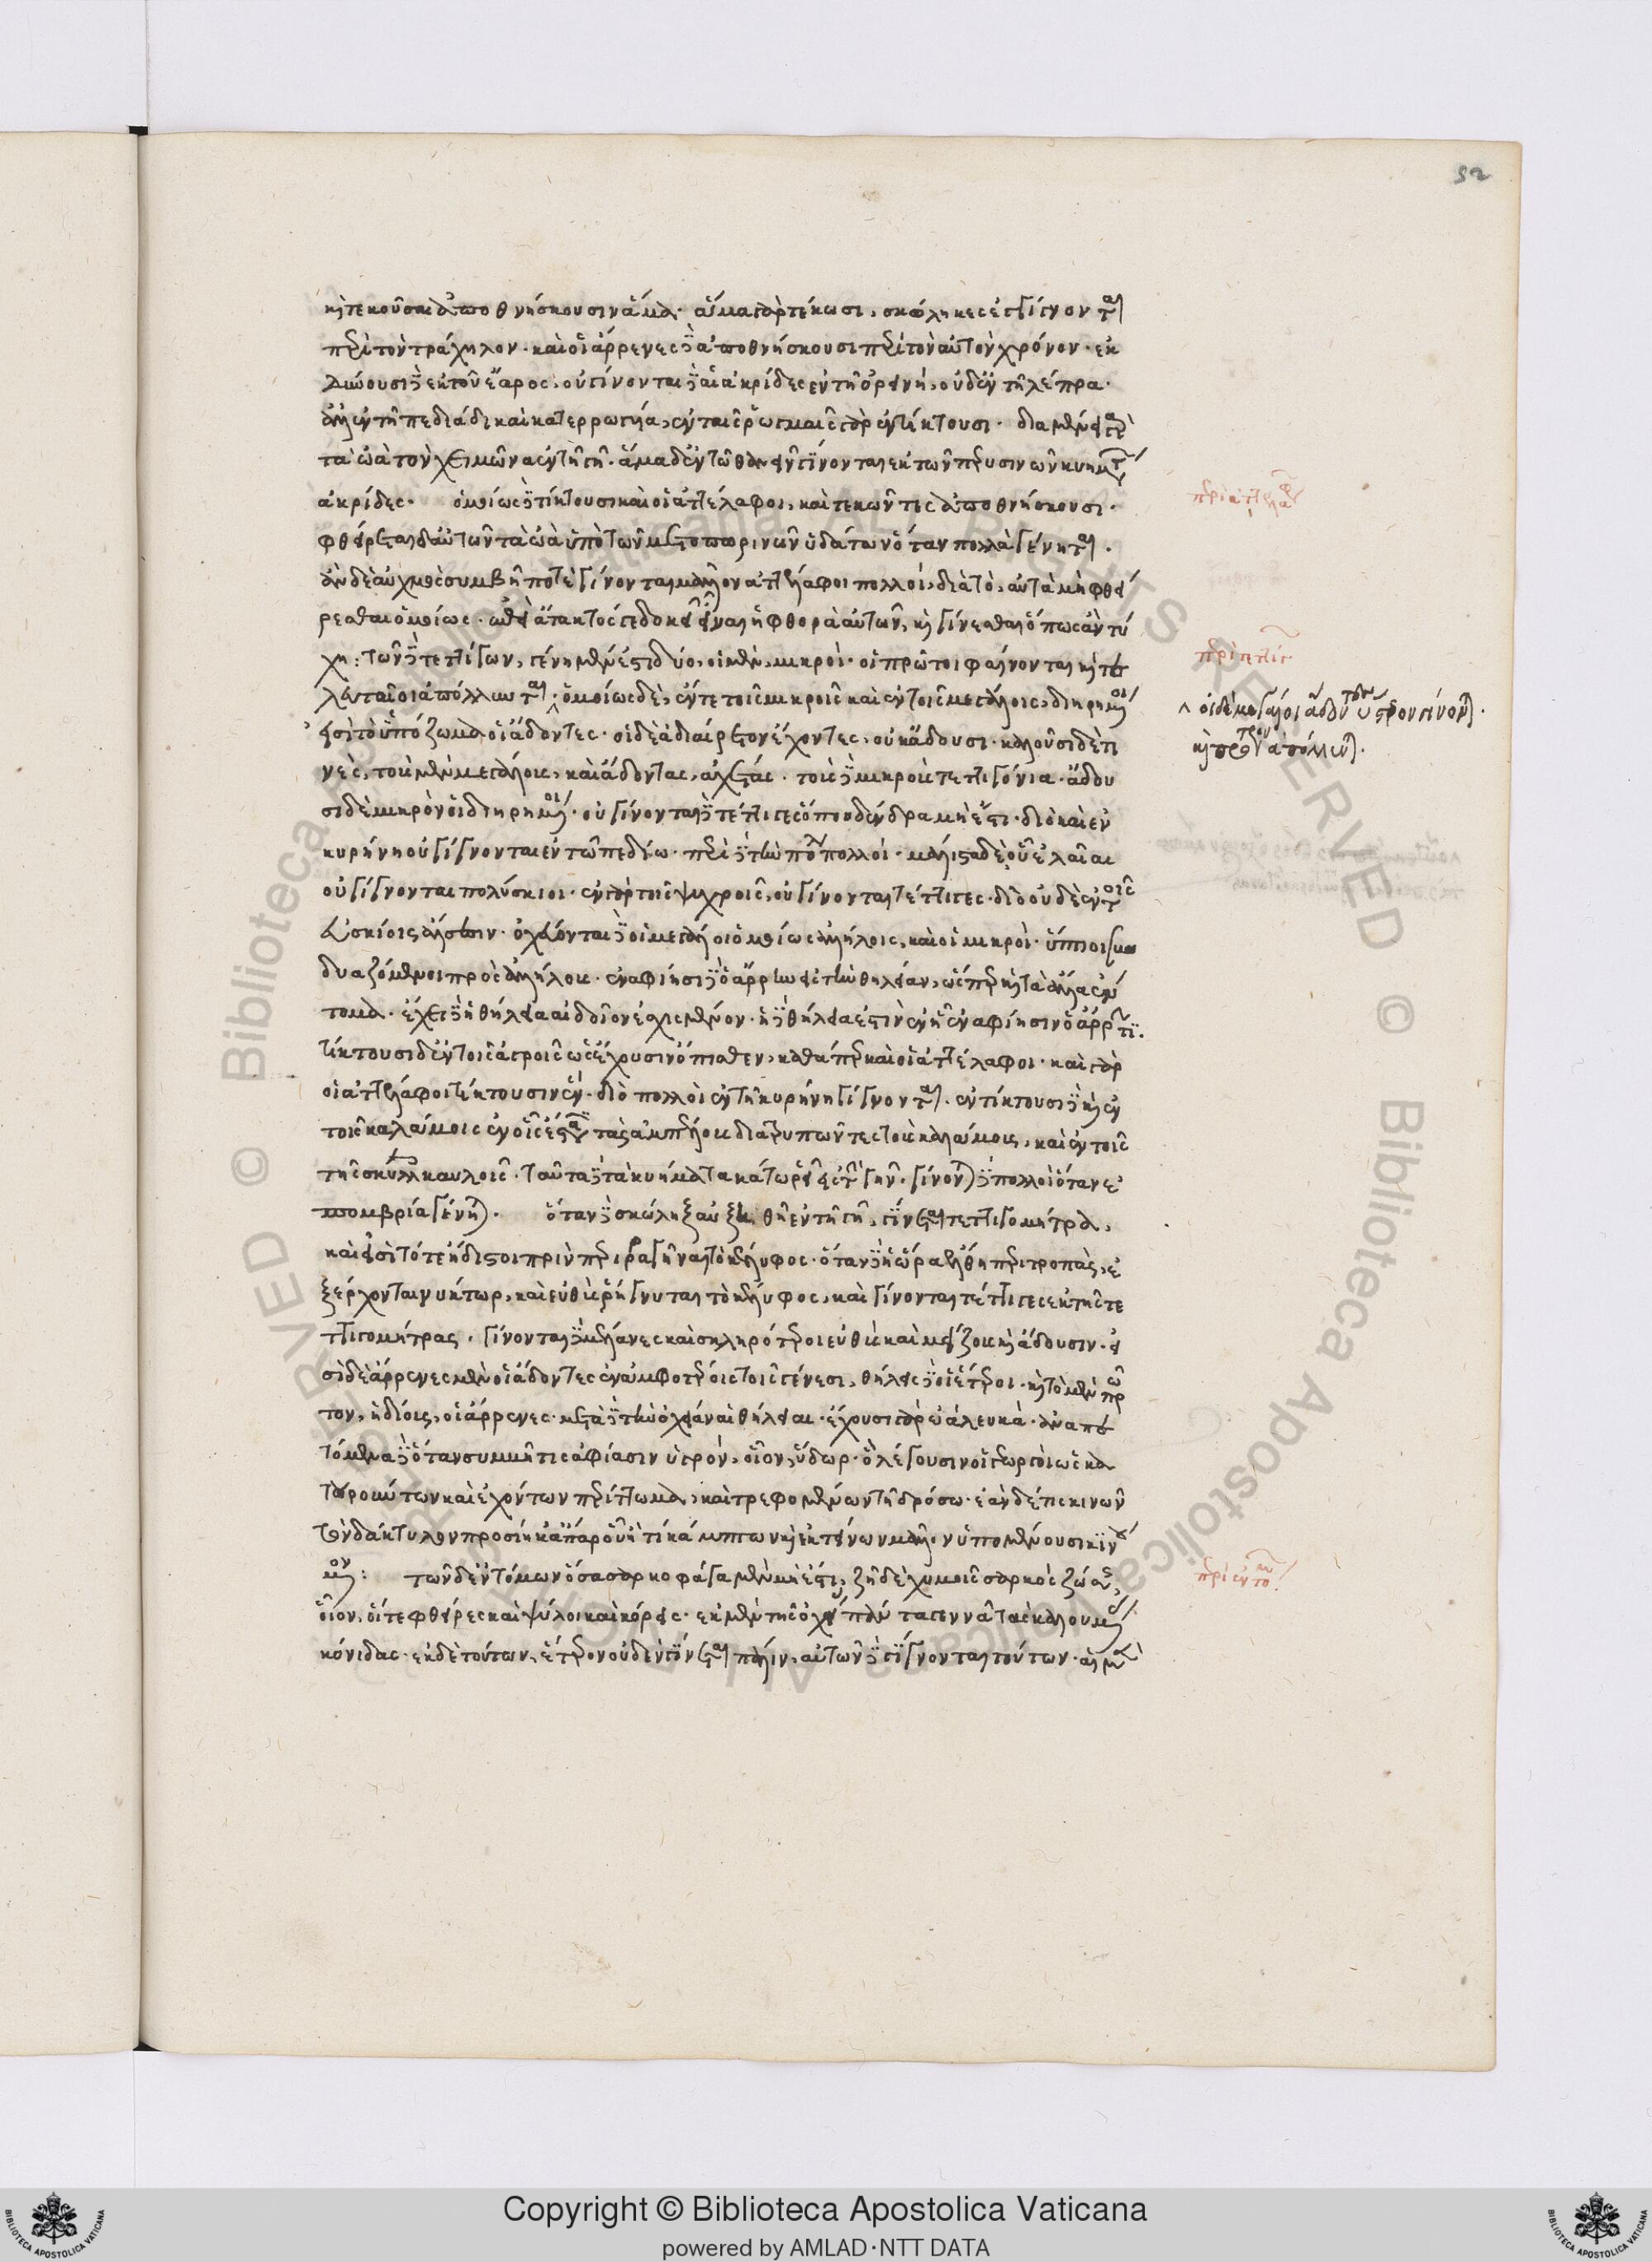 32
κὴ τεκοῦσαι ἀποθνήσκουσιν ἅμα· ἅμα γὰρ τετόκασι, σκώληκες ἐγγίγνονται
περὶ τὸν τράχηλον· καὶ οἱ ἄρρενες δὲ ἀποθνήσκουσι περὶ τὸν αὐτὸν χρόνον· ἐκ
δύουσι δὲ ἐκ τοῦ ἔαρος, οὐ γίνονται δὲ αἱ ἀκρίδες ἐν τῇ ὀρεινῇ, οὐδ' ἐν τῇ λέπρα·
ἀλλ' ἐν τῇ πεδιάδι καὶ κατερρωγυία, ἐν ταῖς ῥωγμαῖς γὰρ ἐντίκτουσι· διαμένει δὲ
τὰ ὠὰ τὸν χειμῶνα ἐν τῇ γῇ· ἅμα δ' ἐν τῷ θέρει γίνονται ἐκ τῶν περυσινῶν κυημάτων
ἀκρίδες· ὁμοίως δὲ τίκτουσι καὶ οἱ ἀττέλαβοι, καὶ τεκόντες ἀποθνήσκουσι·
φθείρεται δ' αὐτῶν τὰ ὠὰ ὑπὸ τῶν μετοπωρινῶν ὑδάτων ὅταν πολλὰ γένηται·
ἂν δὲ αὐχμὸς συμβῇ ποτὲ γίνονται μᾶλλον ἀττέλαβοι πολλοί, διὰ τὸ, αὐτὰ μὴ φθεί
ρεσθαι ὁμοίως· ἐπεὶ ἄτακτός γε δοκεῖ εἶναι ἡ φθορὰ αὐτῶν, κὴ γίνεσθαι ὅπως ἂν τύ
χη: τῶν δὲ τεττίγων, γένη μέν ἐστι δύο, οἱ μὲν, μικροὶ· οἱ πρῶτοι φαίνονται κὴ τε
λευταῖοι ἀπόλλυνται· ὁμοίως δὲ, ἔν τε τοῖς μικροῖς καὶ ἐν τοῖς μεγάλοις, διηρημένοι
εἰσὶ τὸ ὑπόζωμα οἱ ᾄδοντες· οἱ δὲ ἀδιαίρετον ἔχοντες, οὐκ ᾄδουσι· καλοῦσι δέ τι
νες, τοὺς μὲν μεγάλους, καὶ ᾄδοντας, ἀχέτας· τοὺς δὲ μικροὺς τεττιγόνια· ᾄδου
σι δὲ μικρὸν οἱ διηρημένοι· οὐ γίνονται δὲ τέττιγες ὅπου δένδρα μὴ ἔστι· διὸ καὶ ἐν
κυρήνῃ οὐ γίγνονται ἐν τῷ πεδίῳ· περὶ δὲ τὴν πόλιν πολλοί· μάλιστα δὲ, οὗ ἐλαῖαι
οὐ γίγνονται πολύσκιοι· ἐν γὰρ τοῖς ψυχροῖς, οὐ γίνονται τέττιγες· διὸ οὐδὲ ἐν τοῖς
εὐσκίοις ἄλσεσιν· ὀχεύονται δὲ οἱ μεγάλοι ὁμοίως ἀλλήλοις, καὶ οἱ μικροὶ· ὕπτιοι συν
δυαζόμενοι πρὸς ἀλλήλους· ἐναφίησι δὲ ὁ ἄρρην εἰς τὴν θήλειαν, ὥσπερ κὴ τὰ ἄλλα ἔν
τομα· ἔχει δὲ ἡ θήλεια αἰδοῖον ἐσχισμένον· ἡ δὲ θήλεια ἐστὶν ἐν ᾗ ἐναφίησιν ὁ ἄρρην·
τίκτουσι δ' ἐν τοῖς ἀγροῖς ὡς ἔχουσιν ὄπισθεν, καθάπερ καὶ οἱ ἀττέλαβοι· καὶ γὰρ
οἱ ἀττέλαβοι τίκτουσιν ἐν· διὸ πολλοὶ ἐν τῇ κυρήνῃ γίγνονται· ἐντίκτουσι δὲ κὴ ἐν
τοῖς καλάμοις ἐν οἷς ἱστᾶσι τὰς ἀμπέλους διατρυπῶντες τοὺς καλάμους, καὶ ἐν τοῖς
τῆς σκύλλης καυλοῖς· ταῦτα δὲ τὰ κυήματα καταρρεῖ εἰς τὴν γῆν· γίνονται δὲ πολλοὶ ὅταν ἐ
πομβρία γένηται· ὅταν δὲ ὁ σκώληξ αὐξηθῇ ἐν τῇ γῇ, γίνεται τεττιγομήτρα,
καὶ εἰσὶ τότε ἥδιστοι πρὶν περιραγῆναι τὸ κέλυφος· ὅταν δὲ ἡ ὥρα ἔλθῃ περὶ τροπὰς, ἐ
ξέρχονται νύκτωρ, καὶ εὐθὺς ῥήγνυται τὸ κέλυφος, καὶ γίνονται τέττιγες ἐκ τῆς τε
ττιγομήτρας· γίνονται δὲ μέλανες καὶ σκληρότεροι εὐθὺς καὶ μείζους κὴ ᾄδουσιν· εἰ
σὶ δὲ ἄρρενες μὲν οἱ ᾄδοντες ἐν ἀμφοτέροις τοῖς γένεσι, θήλεις δὲ οἱ ἕτεροι· κὴ τὸ μὲν πρῶ
τον, ἡδίους, οἱ ἄρρενες· μετὰ δὲ τὴν ὀχείαν αἱ θήλειαι· ἔχουσι γὰρ ὠὰ λευκὰ· ἀναπε
τόμενα δὲ ὅταν σομμῇ τις ἀφίασιν ὑγρὸν, οἷον, ὕδωρ· ὃ λέγουσιν οἱ γεωργοὶ ὡς κα
τουρούντων καὶ ἐχόντων περίττωμα, καὶ τρεφομένων τῇ δρόσῳ· ἐὰν δέ τις κινῶν
τὸν δάκτυλον προσίῃ κἀπ' ἄκρου κάμπτων κὴ ἐκτείνων μᾶλλον ὑπομένουσι
τῶν δ' ἐντόμων ὅσα σαρκοφάγα μὲν μὴ ἔστι, ζῇ δὲ χυμοῖς σαρκὸς ζώσης,
οἷον, οἵ τε φθεῖρες καὶ ψύλλοι καὶ κόρεις· ἐκ μὲν τῆς ὀχείας πάντα γεννᾷ τὰς καλουμένας
κόνιδας· ἐκ δὲ τούτων, ἕτερον οὐδὲν γίνεται πάλιν, αὐτῶν δὲ γίγνονται τούτων· αἱ μὲν
περὶ ἀττελάβων
περὶ τεττίγων
οἱ δὲ μεγάλοι ᾄδοντες ὕστερον γίνονται·
κὴ πρότερον ἀπόλλυνται·
περὶ ἐντόμων
Copyright © Biblioteca Apostolica Vaticana
powered by AMLAD·NTT DATA